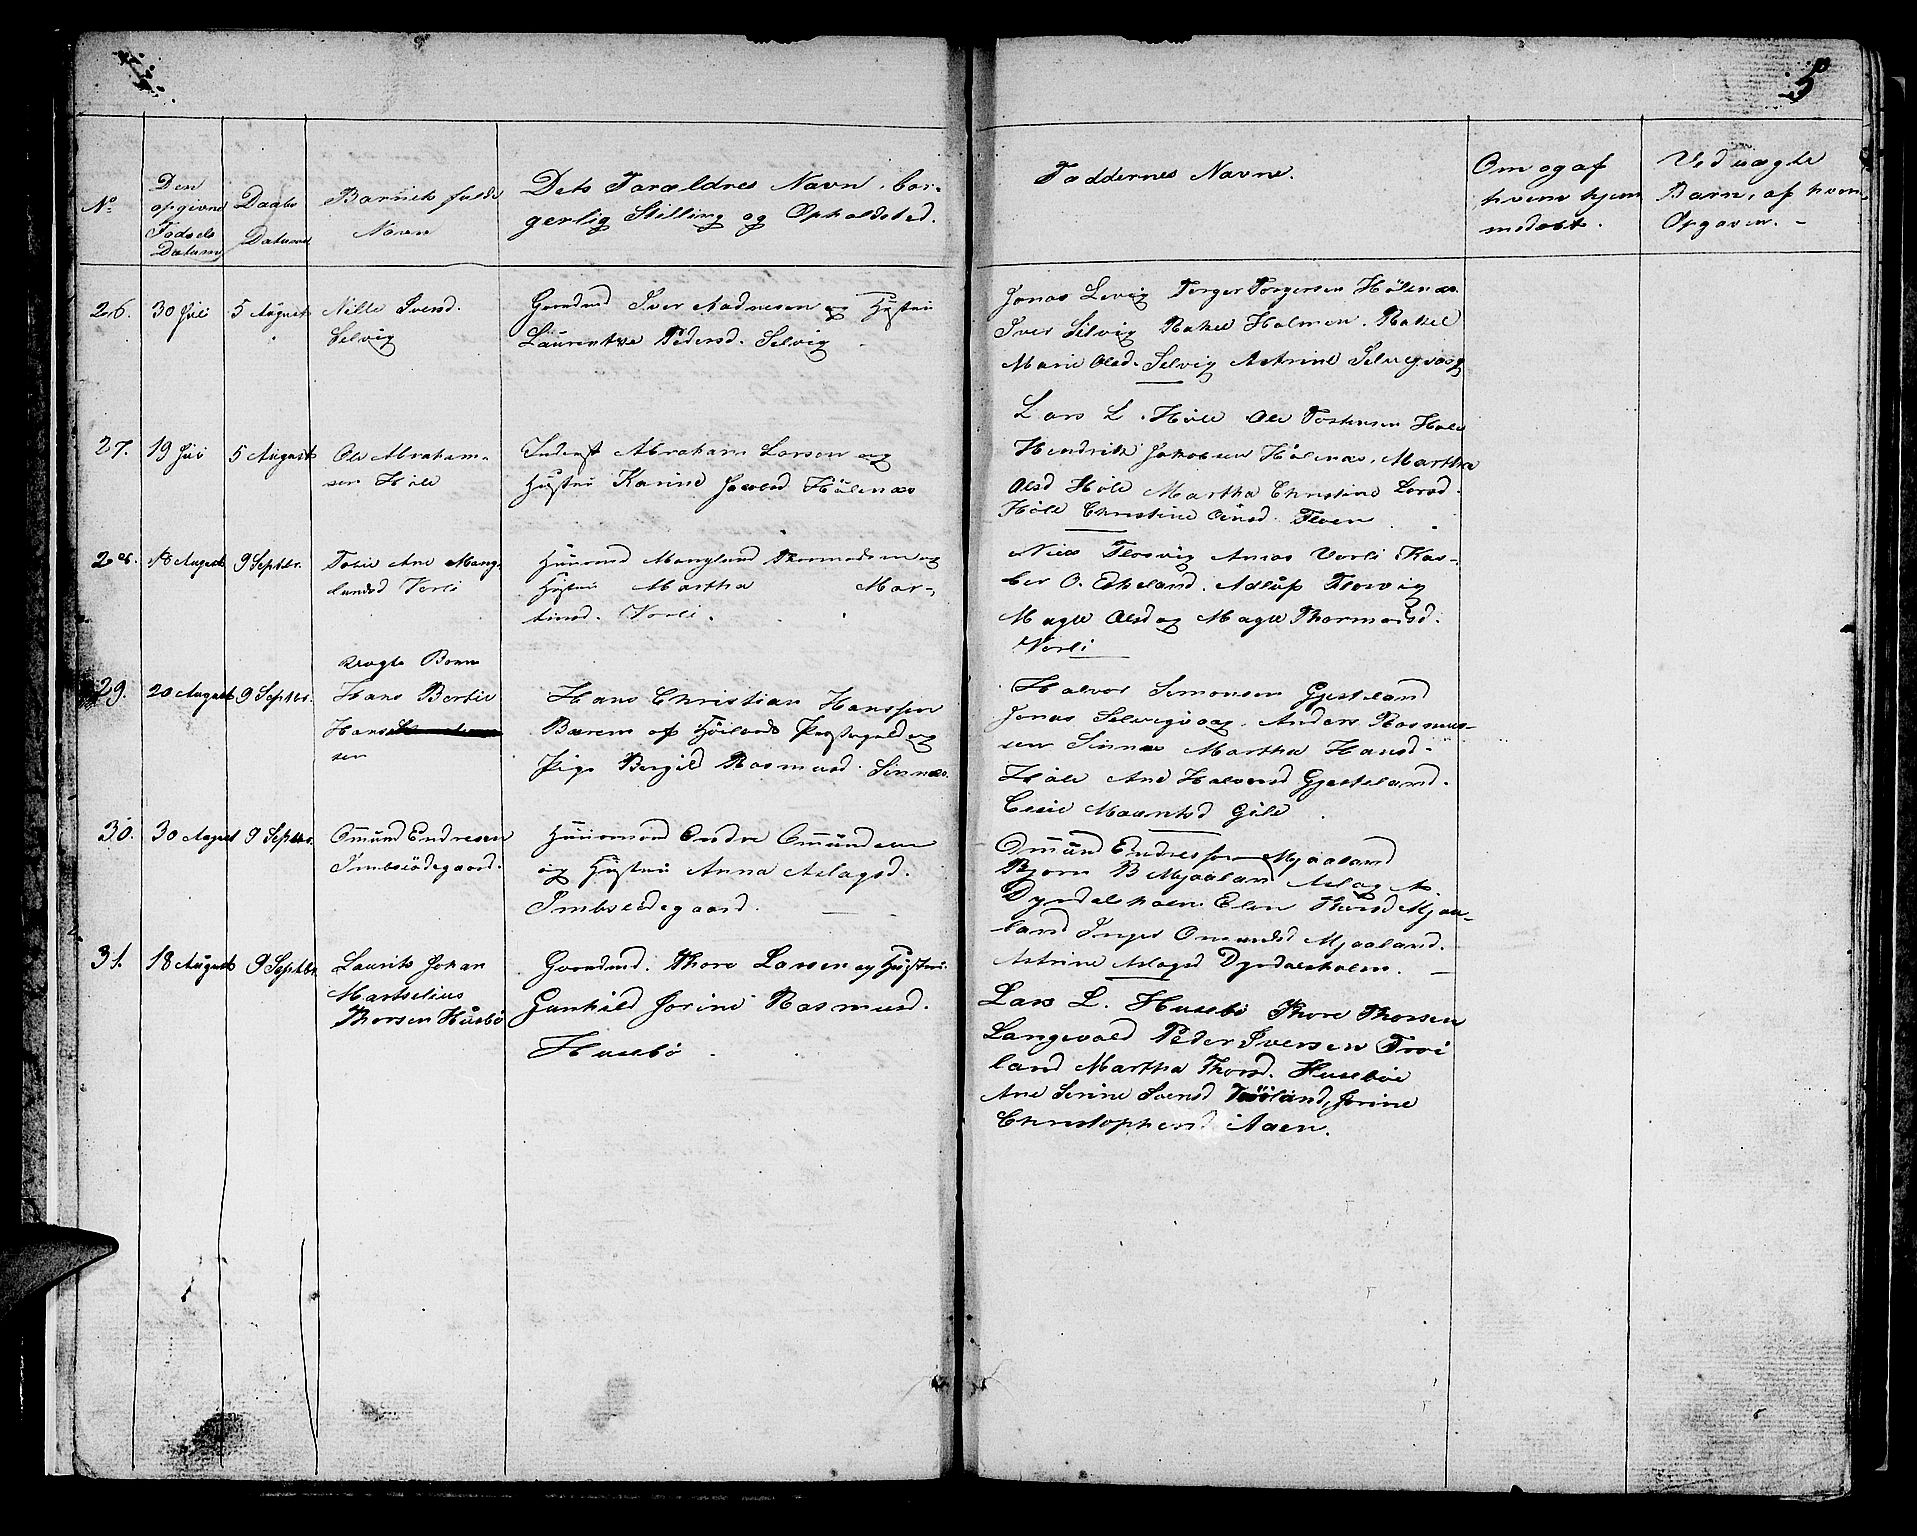 5
No
Den
opgivne
Fødsels
Datum
Daabs
Datum
Barnets fulde
Navn
Dets Forældres Navn, bor-
gerlig Stilling og Opholdsted.
Faddernes Navne.
Om og af
hvem hjem
medøbt.
Ved uægte
Barn, af hvem
Opgaven. -
26.
30 Juli
5 August
Nille Iversd.
Selvig
Gaardmd Iver Aadnesen og Hustru
Laurentse Pedersd. Selvig
Jonas Levig Torger Torgersen Hölenæs.
Iver Selvig Rakel Holmen. Rakel
Marie Olsd. Selvig Astrine Selvigvaag
27.
19 Juli
5 August
Ole Abraham-
sen Hole
Inderst Abraham Larsen og
Hustru Karine Jacobsd Hölenæs
Lars L. Höle Ole Tostensen Hole
Hendrik Jakobsen Hölenæs, Martha
Olsd Höle Martha Christine Larsd.
Höle Christine Olsd. Tveen
28.
18 August
9 Septbr.
Tobie Ane Mang-
landsd Vorli
Huusmd Manglund Thormodsen og
Hustru Martha Mar-
tinsd. Vorli.
Niels Flosvig Anias Vorli Kas-
ber O. Eikeland. Adlup Flosvig
Magle Olsd og Magle Thormodsd.
Vorli
29.
20 August
9 Septbr.
Uægte Barn
Hans Bertil
Hans
sen
Hans Christian Hanssen
Bærem af Höilands Præstegjeld og
Pige Bergild Rasmusd. Sinnæs.
Halvor Simonsen Gjesteland
Jonas Selvigvaag. Anders Rasmus-
sen Sinnæs Martha Hansd.
Höle Ane Halvorsd Gjesteland.
Cecilie Maanksd Gile.
30.
30 August
9 Septbr.
Ommund Endresen
Imbsödegaard.
Huusmand Endre Ommundsen
og Hustru Anna Aslagsd.
Imbsödegaard.
Ommund Endressen Mjaaland
Bjorn B Mjaaland Aslag A.
Dyrdalsholen. Elen Thorsd Mjaa-
land Inger Ommundsd Mjaaland.
Astrine Aslagsd Dyrdalsholen.
31.
18 August
9 Septbr.
Laurits Johan
Martselius
Thorsen Husbö
Gaardmd. Thore Larsen og Hustru.
Gunhild Jorine Rasmusd.
Husebö
Lars L. Husebö Thore Thorsen
Langevold Peder Iversen Frøi
land Martha Thorsd. Huseböe
Ane Serine Svensd Fröiland, Jorine
Christophersd i Aaen.